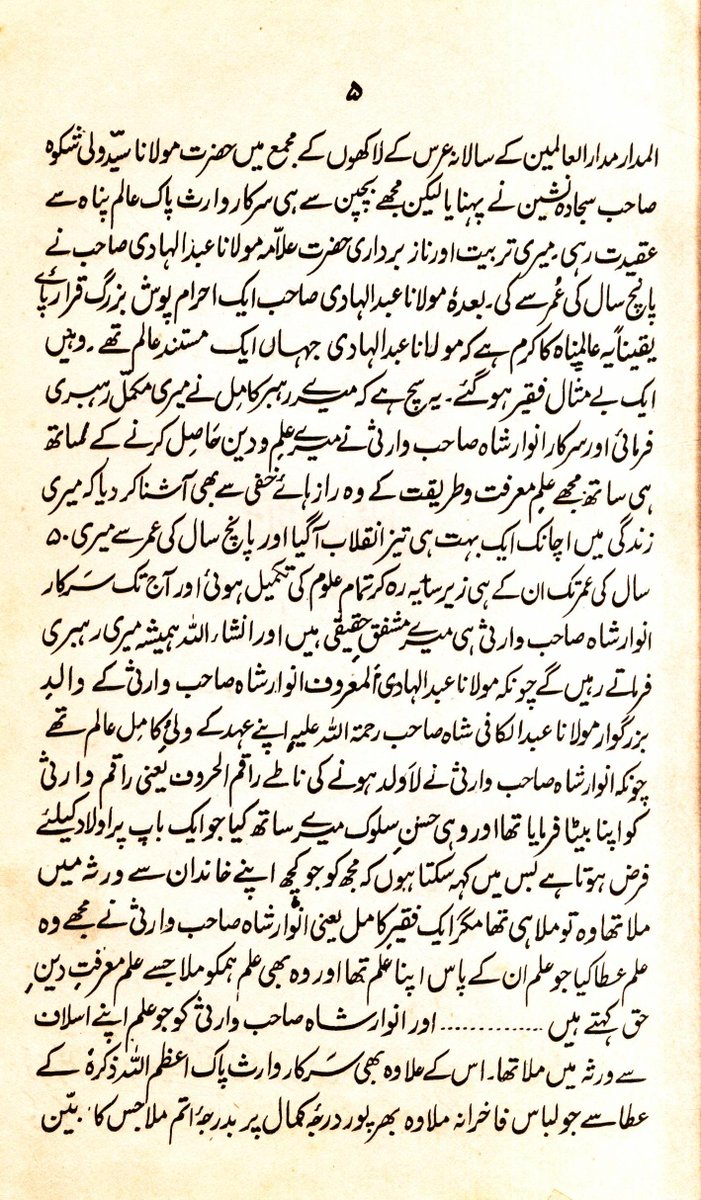 ۵
المدار مدار العالمین کے سالانہ عرس کے لاکھوں کے مجمع میں حضرت مولانا سیّد ولی شکوہ
صاحب سجادہ نشین نے پہنایا لیکن مجھے بچپن سے ہی سرکار وارث پاک عالم پناہ سے
عقیدت رہی۔ میری تربیت اور ناز برداری حضرت علامہ مولانا عبد الہادی صاحب نے
پانچ سال کی عُمر سے کی۔ بعدہٗ مولانا عبد الہادی صاحب ایک احرام پوش بزرگ قرار پائے
یقیناً یہ عالم پناہ کا کرم ہے کہ مولانا عبد الہادی جہاں ایک مستند عالم تھے۔ وہیں
ایک بے مثال فقیر ہو گئے۔ یہ سچ ہے کہ میرے رہبر کامل نے میری مکمّل رہبری
فرمائی اور سرکار انوار شاہ صاحب وارثی نے میرے علم و دین حاصل کرنے کے ساتھ
ہی ساتھ مجھے علم معرفت و طریقت کے وہ راز ہائے خفی سے بھی آشنا کر دیا کہ میری
زندگی میں اچانک ایک بہت ہی تیز انقلاب آگیا اور پانچ سال کی عمر سے میری ۵۰
سال کی عمر تک ان کے ہی زیر سایہ رہ کر تمام علوم کی تکمیل ہوئی اور آج تک سرکار
انوار شاہ صاحب وارثی ہی میرے مشفق حقیقی ہیں اور انشاء اللہ ہمیشہ میری رہبری
فرماتے رہیں گے چونکہ مولانا عبد الہادی المعروف انوار شاہ صاحب وارثی کے والد
بزرگوار مولانا عبد الکافی شاہ صاحب رحمۃ اللہ علیہ اپنے عہد کے ولیٔ کامل عالم تھے
چونکہ انوار شاہ صاحب وارثی نے لاَولد ہونے کی ناطے راقم الحروف یعنی راقم وارثی
کو اپنا بیٹا فرمایا تھا اور وہی حسنِ سلوک میرے ساتھ کیا جو ایک باپ پر اولاد کیلئے
فرض ہوتا ہے بس میں کہہ سکتا ہوں کہ مجھ کو جو کچھ اپنے خاندان سے ورثہ میں
ملا تھا وہ تو ملا ہی تھا مگر ایک فقیرِ کامل یعنی انوار شاہ صاحب وارثی نے مجھے وہ
علم عطا کیا جو علم ان کے پاس اپنا علم تھا اور وہ بھی علم ہمکو ملا جسے علم معرفتِ دینِ
حق کہتے ہیں .............. اور انوار شاہ صاحب وارثی کو جو علم اپنے اسلاف
سے ورثہ میں ملا تھا۔ اس کے علاوہ بھی سرکار وارث پاک اعظم اللہ ذکرہٗ کے
عطا سے جو لباس فاخرانہ ملا وہ بھر پور درجۂ کمال پر بدرجۂ اتم ملا جس کا بیّن